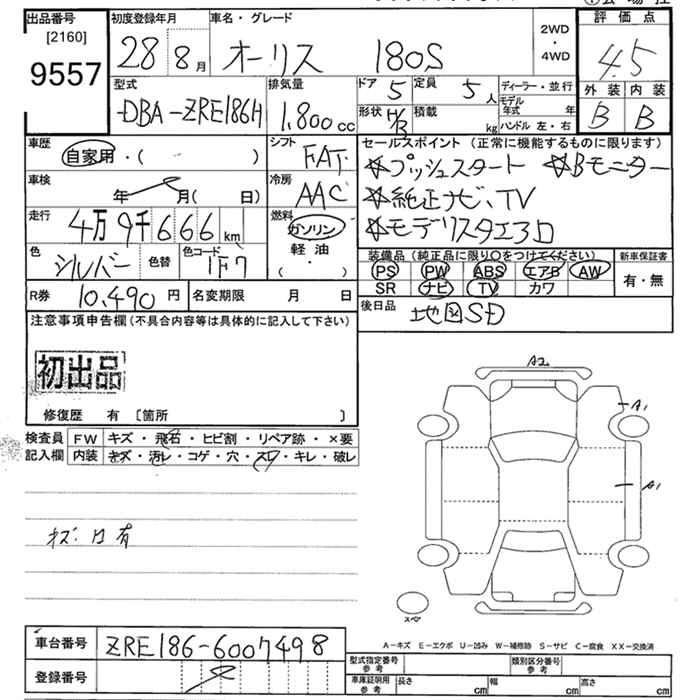 出品番号 初度登録年月 車名・グレード 評価点
[2160]
9557 28 8月 オーリス 180S 2WD・4WD 4.5
型式 排気量 ドア 5 定員 5人 ディーラー・並行 外装 内装
DBA-ZRE186H 1,800cc 形状 H/B 積載 kg モデル年式 年 B B
ハンドル 左・右
車歴 シフト セールスポイント (正常に機能するものに限ります)
自家用・( ) FAT ☆プッシュスタート ☆Bモニター
車検 冷房 ☆純正ナビ、TV
年 月( 日) AAC ☆モデリスタエアロ
走行 4万9千666km 燃料 ガソリン・軽油・( )
色 色替 色コード 装備品(純正品に限り○をつけてください) 新車保証書
シルバー 1F7 PS PW ABS エアB AW 有・無
SR ナビ TV カワ
R券 10,490円 名変期限 月 日 後日品 地図SD
注意事項申告欄(不具合内容等は具体的に記入して下さい)
初出品
修復歴 有 〔箇所 〕
検査員 FW キズ・飛石・ヒビ割・リペア跡・×要
記入欄 内装 キズ・汚レ・コゲ・穴・スレ・キレ・破レ
A2
A1
A1
スペア
A-キズ E-エクボ U-凹み W-補修跡 S-サビ C-腐食 XX-交換済
車台番号 ZRE186-6007498 型式指定番号 参考 類別区分番号 参考
登録番号 車庫証明用 参考 長さ cm 幅 cm 高さ cm